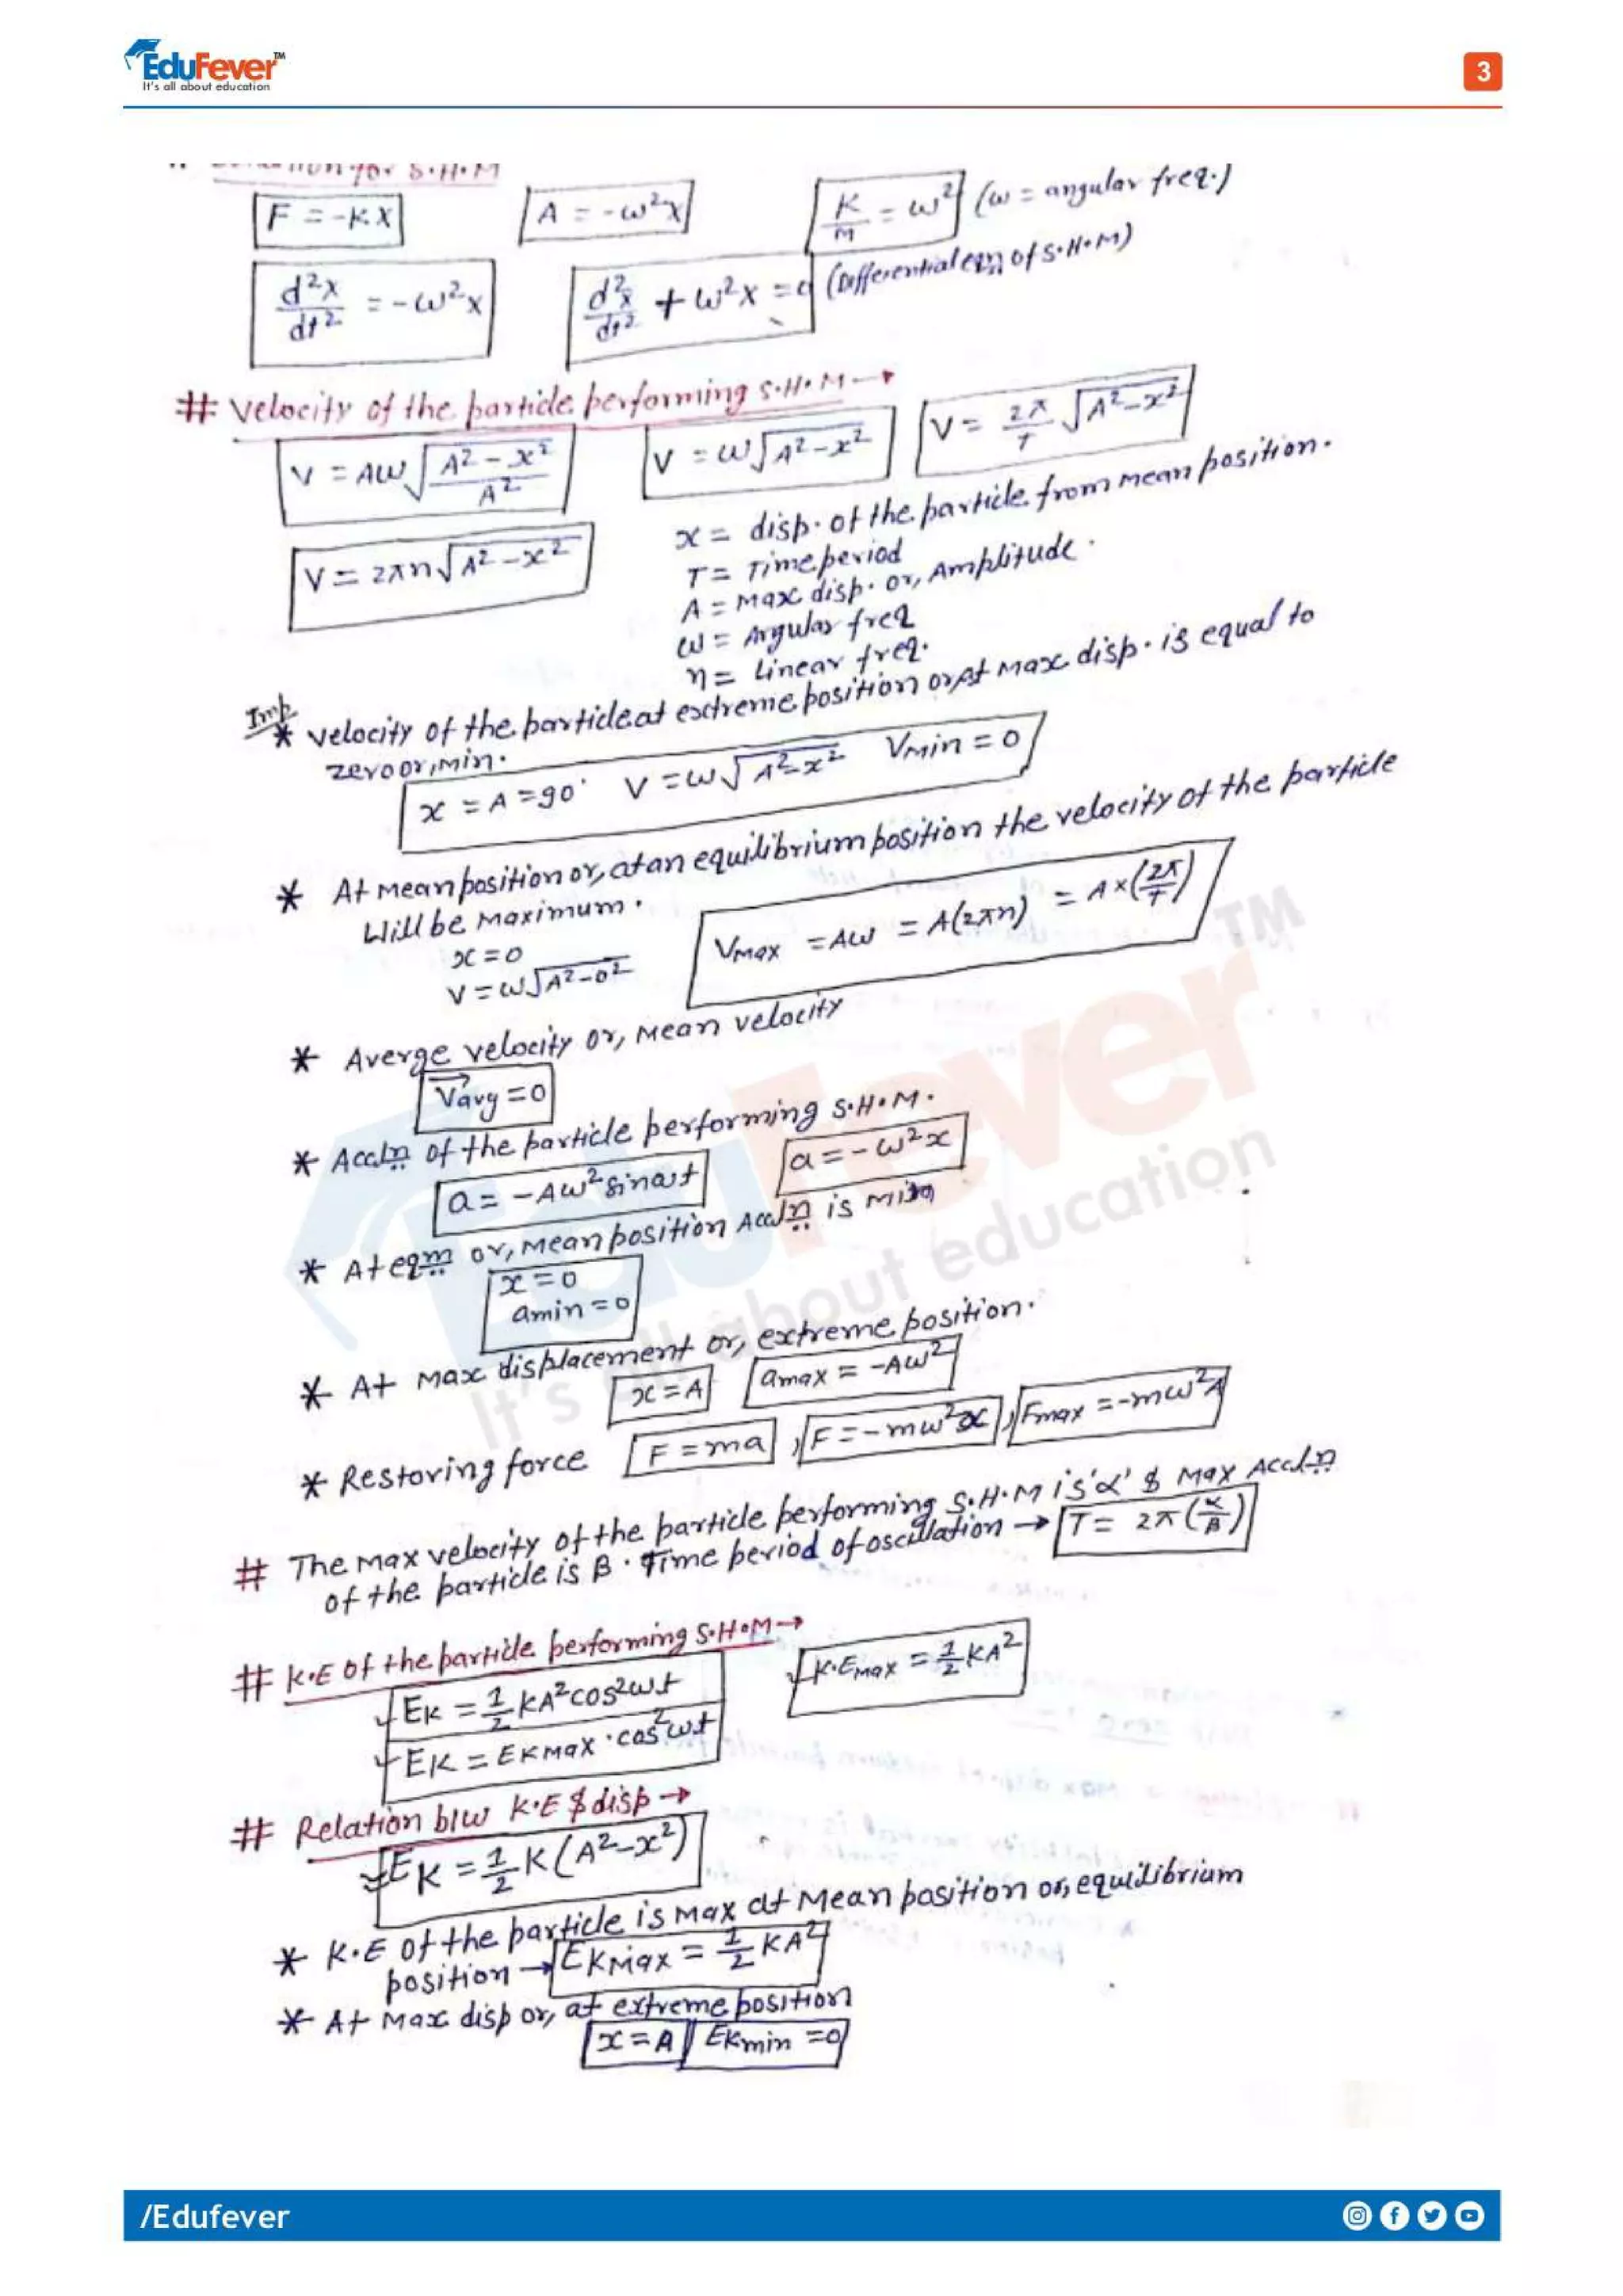 EduFever™
It's all about education
3
for S.H.M
F = -KX
A = -ω²X
K/M = ω² (ω = angular freq.)
d²x/dt² = -ω²x
d²x/dt² + ω²x = 0 (Differential eqn of S.H.M)
# Velocity of the particle performing S.H.M →
V = Aω√(A² - x²/A²)
V = ω√A²-x²
V = 2π/T √A²-x²
V = 2πn√A²-x²
x = disp. of the particle from mean position.
T = Time period
A = Max disp. or, Amplitude.
ω = Angular freq
n = Linear freq.
Imp
* velocity of the particle at extreme position or, At Max disp. is equal to
zero or, min.
x = A = 90° V = ω√A²-x² Vmin = 0
* At Mean position or, at an equilibrium position the velocity of the particle
Will be Maximum.
x = 0
V = ω√A²-0²
VMax = Aω = A(2πn) = A×(2π/T)
* Averge velocity or, Mean velocity
Vavg = 0
* Accln of the particle performing S.H.M.
a = -Aω²sinωt
a = -ω²x
* At eqm or, Mean position Accln is min
x = 0
amin = 0
* At Max displacement or, extreme position.
x = A
amax = -Aω²
* Restoring force F = ma , F = -mω²x , Fmax = -mω²A
# The Max velocity of the particle performing S.H.M is 'α' & Max Accln
of the particle is β. Time period of oscillation → T = 2π(α/β)
# K.E of the particle performing S.H.M →
EK = 1/2 KA²cos²ωt
K.EMax = 1/2 KA²
EK = EKMax . cos²ωt
# Relation b/w K.E & disp →
EK = 1/2 K(A²-x²)
* K.E of the particle is Max at Mean position or, equilibrium
position → EKMax = 1/2 KA²
* At Max disp or, at extreme position
x = A EKmin = 0
/Edufever